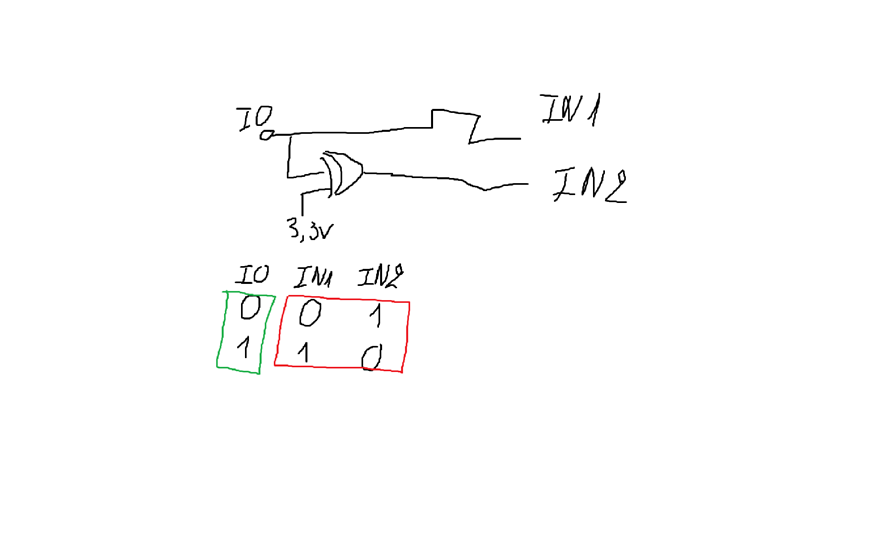 IO
IN1
IN2
3,3V
IO IN1 IN2
0 0 1
1 1 0